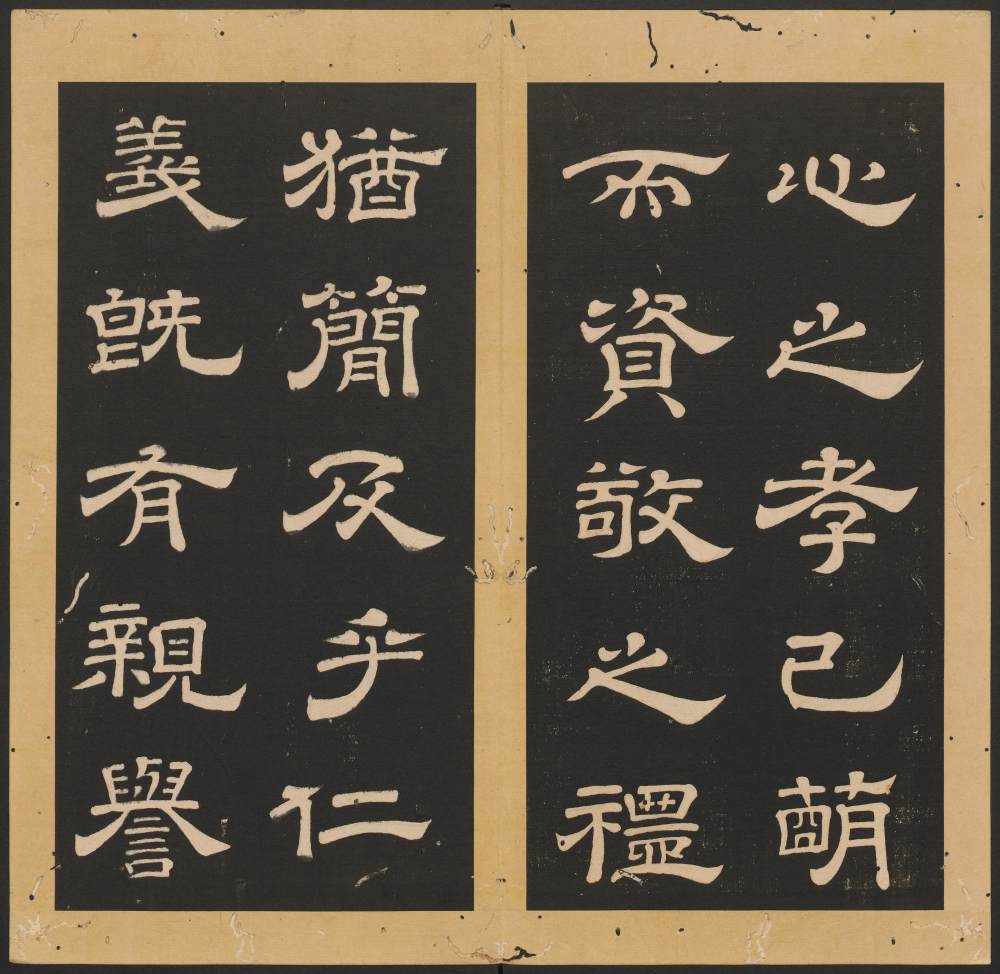 心之孝已萌
而資敬之禮
猶簡及乎仁
義既有親譽